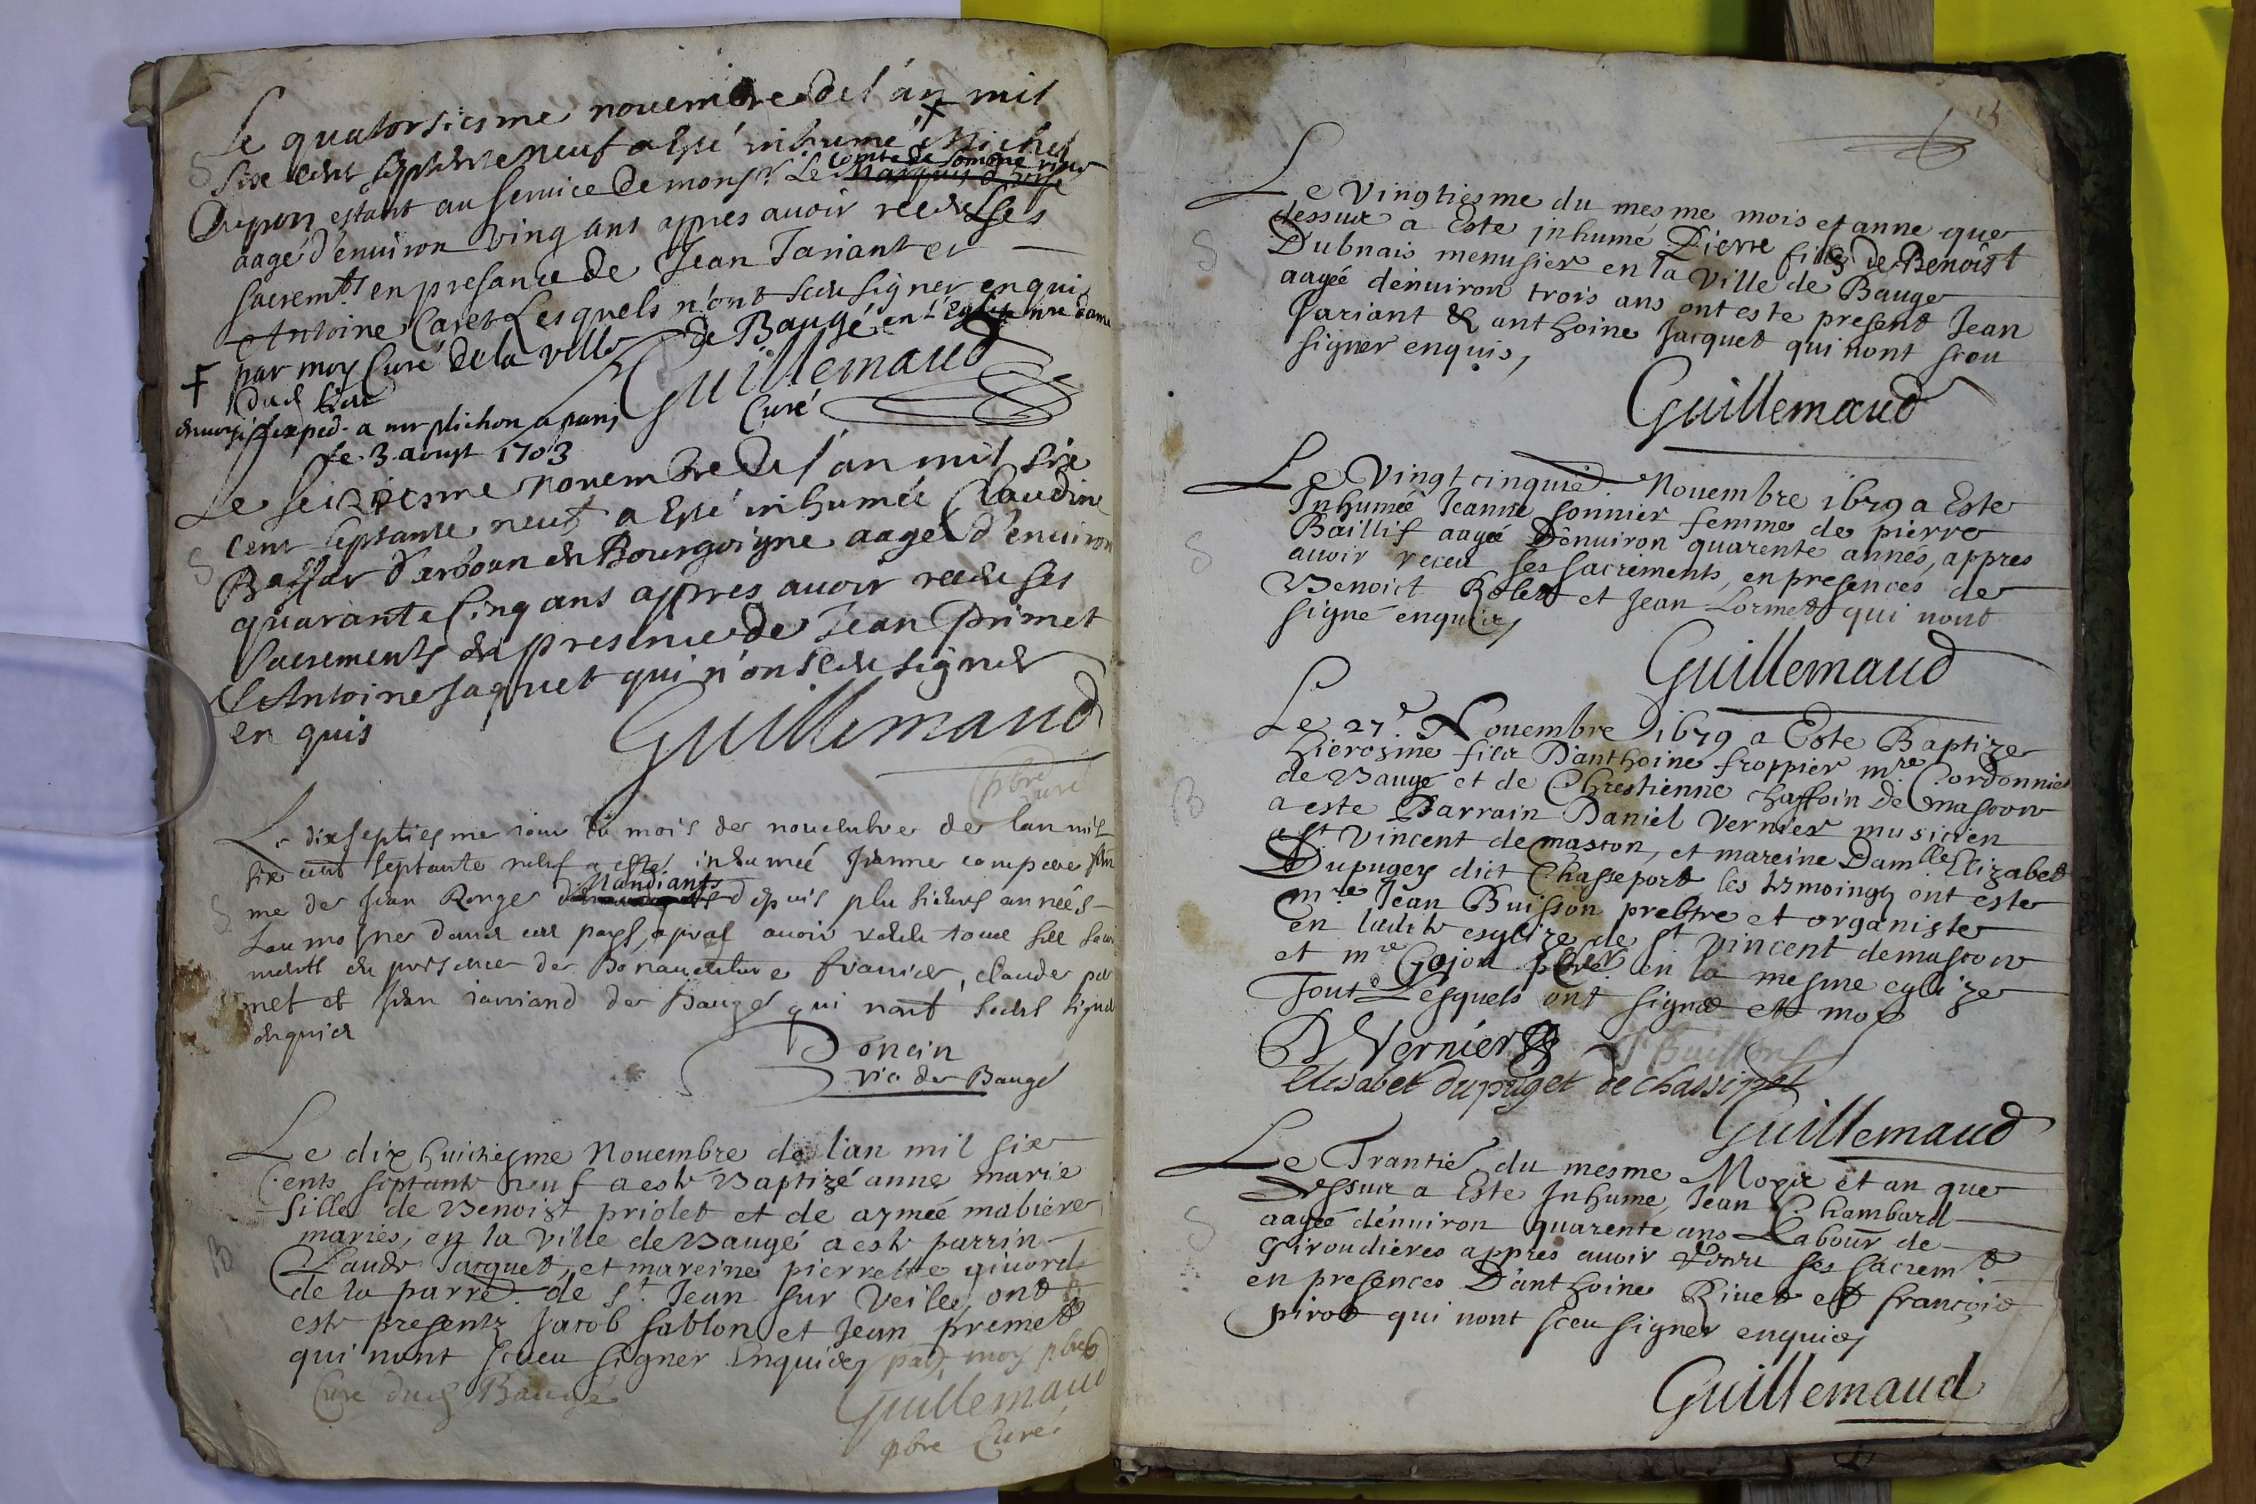 Le quatorsiesme novembre de l'an mil
Six cent septante neuf a esté inhumé + Michel
comte de
Crepon estant au service de monsr. Le Marquis d'
aagé d'environ vingt ans appres avoir receu ses
sacremts. en presance de Jean Jariant et
Antoine Caret Lesquels n'ont sceu signer enquis
par moy Curé de la ville de Baugé en l'Eglise nre dame
+ dud lieu
Guillemaud
Curé
a mr plichon a paris
le 3. aoust 1703
Le seiziesme novembre de l'an mil six
cent septante neuf a esté inhumée Claudine
Baffar d'erboun en Bourgoigne aagée d'environ
quarante cinq ans appres avoir receu ses
sacrements en presence de Jean Primet
et Antoine Jaquet qui n'ont sceu signer
en quis
Guillemaud
pbre
curé
Le dixseptiesme iour du mois de novembre de lan mil
six cent septante neuf a esté inhumeé Jeanne compere fem
me de Jean Ronge mandiants depuis plusieurs années
Laumosne dans ces pays, apres avoir receu tous ses sacre
ments en presence de Bonaventure francier, claude pri
met et Jean iarriand de Baugé qui nont sceu signer
enquis
Doncin
vic. de Baugé
Le dix huitiesme Novembre de lan mil six
Cents septante neuf a esté Baptizé anne marie
fille de Benoist priolet et de aymeé mabiere
mariés, en la ville de Baugé a esté parrin
Claude Jacquet, et mareine pierrette givord
de la parre. de St. Jean sur Veile, ont
esté presents Jacob sablon et Jean premet
qui nont sceu signer Enquis par moy pbre
Cure dud Baugé
Guillemaud
pbre Curé
Le Vingtiesme du mesme mois et anne que
dessus a Esté inhumé Pierre fils de Benoist
Dubnais menusier en la Ville de Bauge
aageé d'environ trois ans ont este present Jean
Jariant & anthoine Jacquet qui nont sceu
signer enquis,
Guillemaud
Le Vingtcinquie. Novembre 1679 a Este
Inhumeé Jeanne sonnier femme de pierre
Baillif aageé D'environ quarente années, appres
avoir receu ses sacrements, en presences de
Benoict Robert et Jean Lormet qui nont
signé enquis
Guillemaud
Le 27e. Novembre 1679 a Este Baptize
hierosme fils D'anthoine froppier mre Cordonnier
de Baugé et de Chrestienne chaffoin de mascon
a este Parrain Daniel Vernier musicien
a St. Vincent de mascon, et mareine Damlle Elizabet
Dupuget dict Chasseport les tesmoings ont este
mre Jean Buisson prebtre et organiste
en ladite esglize de St Vincent de mascon
et mre Gojon pbre en la mesme eglize
Tout Lesquels ont signé et moy
D Vernier J Buisson
elisabet dupuget de chassipet
Guillemaud
Le Trantie du mesme Moys et an que
dessus a Este Inhume, Jean Chambard
aageé d'environ quarente ans Labour de
Giroudieres appres avoir receu ses sacremt
en presences D'anthoine Rivet et françois
pirot qui nont sceu signer enquis
Guillemaud